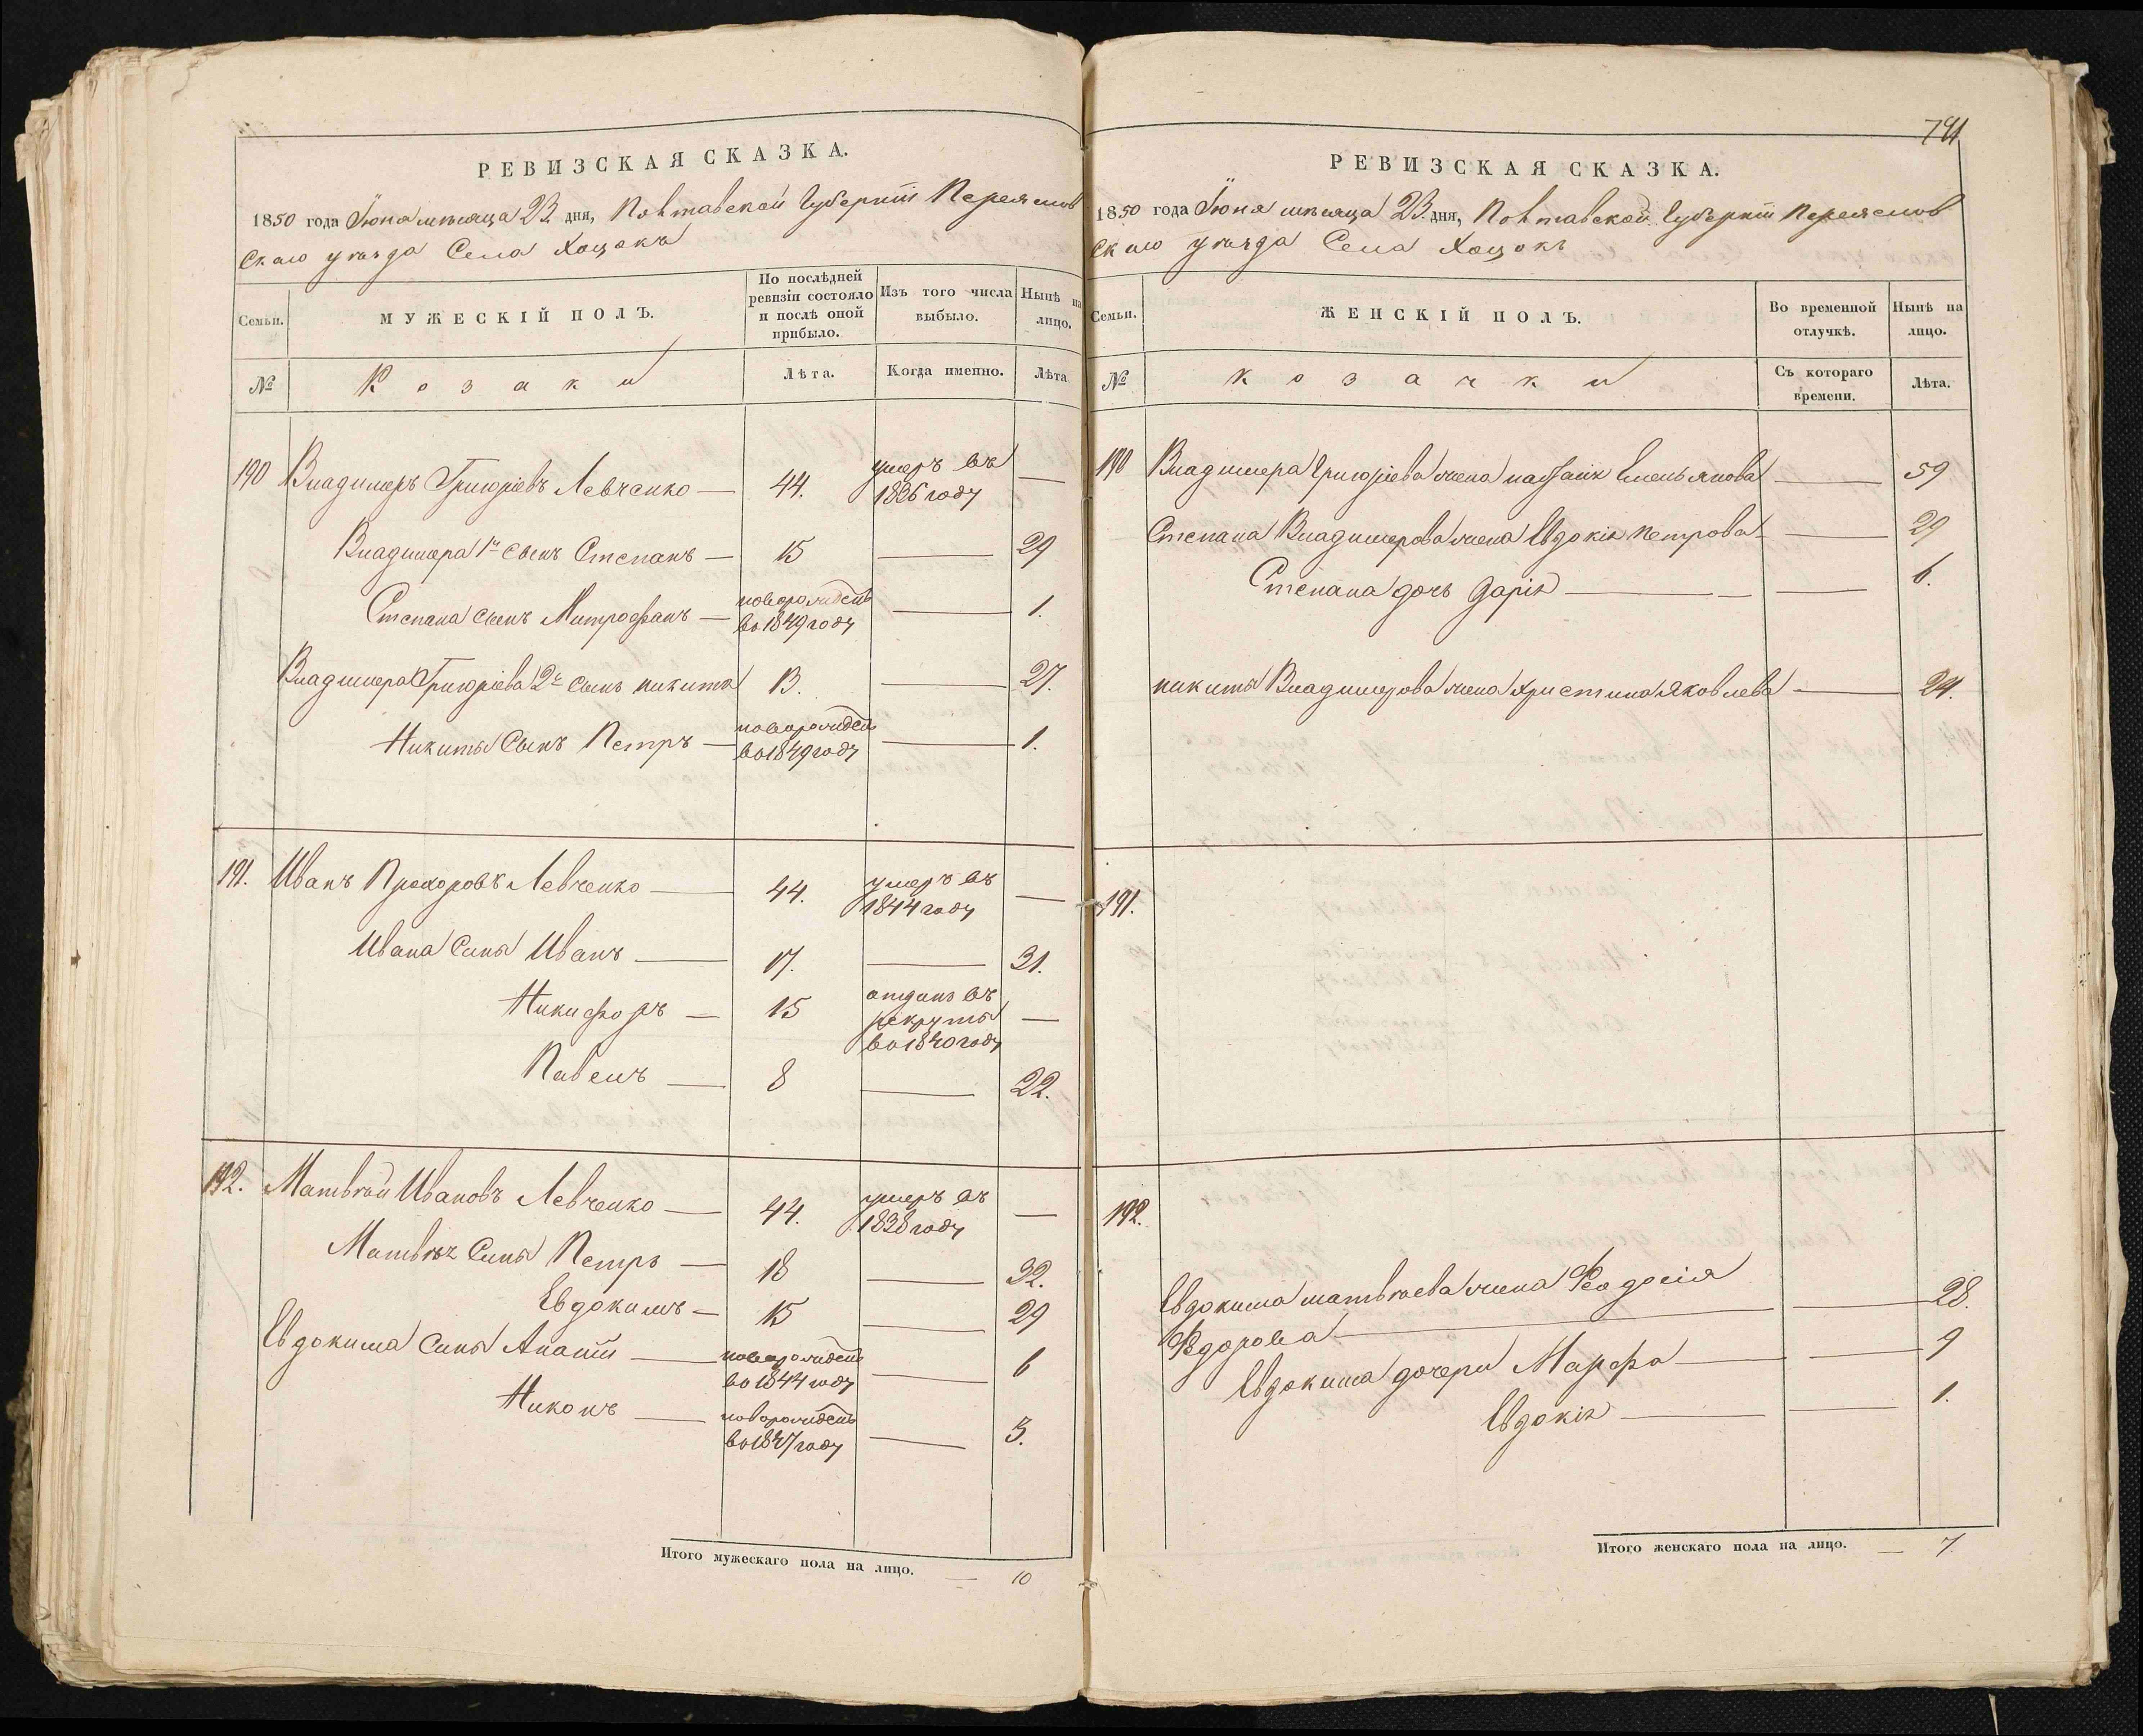 РЕВИЗСКАЯ СКАЗКА.
1850 года Іюня мѣсяца 23 дня, Полтавской Губерніи Переяслов
скаго уѣзда Села Хоцокъ
Семьи.
МУЖЕСКІЙ ПОЛЪ.
По послѣдней
ревизіи состояло
и послѣ оной
прибыло.
Изъ того числа
выбыло.
Нынѣ на
лицо.
№
Козаки
Лѣта.
Когда именно.
Лѣта
190 Владимеръ Григоріевъ Левченко — 44. умеръ въ
1836 году —
Владимера 1й сынъ Степанъ — 15 — 29
Степана сынъ Митрофанъ — новорожден
во 1849 году — 1.
Владимера Григоріева 2й сынъ Никита 13. — 27.
Никиты Сынъ Петръ — новорожден
во 1849 году — 1.
191. Иванъ Прохоровъ Левченко — 44. умеръ въ
1844 году —
Ивана Сины Иванъ — 17. — 31.
Никифоръ — 15 отданъ въ
рекруты
во 1840 году —
Павелъ — 8 — 22.
192. Матвѣй Ивановъ Левченко — 44. умеръ въ
1838 году —
Матвѣя Сины Петръ — 18 — 32.
Евдокимъ — 15 — 29
Евдокима Сины Анатій — новорожден
во 1844 году — 6
Никонъ — новорожден
во 1847 году — 3.
Итого мужескаго пола на лицо. — 10
РЕВИЗСКАЯ СКАЗКА.
1850 года Іюня мѣсяца 23 дня, Полтавской Губерніи Переяслов
скаго уѣзда Села Хоцокъ
Семьи.
ЖЕНСКІЙ ПОЛЪ.
Во временной
отлучкѣ.
Нынѣ на
лицо.
№
Козачки
Съ котораго
времени.
Лѣта.
190 Владимера Григоріева жена Емельянова — 59
Степана Владимерова жена Евдокія Петрова — 29
Степана дочь Дарія — — 6.
Никиты Владимерова жена Христина Яковлева — 24.
191.
192.
Евдокима Матвѣева жена Феодосія
Федорова — — 28.
Евдокима дочери Марфа — — 9
Евдокія — — 1.
Итого женскаго пола на лицо. — 7